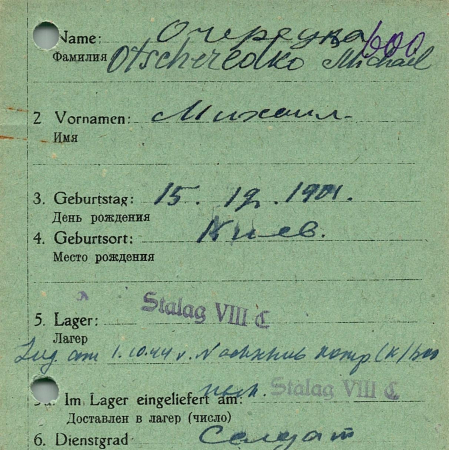 Name: Очередко 600
Фамилия Otscheredko Michael
2 Vornamen: Михаил.
Имя
3. Geburtstag: 15. 12. 1901.
День рождения
4. Geburtsort: Киев.
Место рождения
Stalag VIII C
5. Lager:
Лагер
Zug am 1.10.44 v. Nachschub Komp (K)
Im Lager eingeliefert am: Stalag VIII C
Доставлен в лагер (число)
6. Dienstgrad Солдат